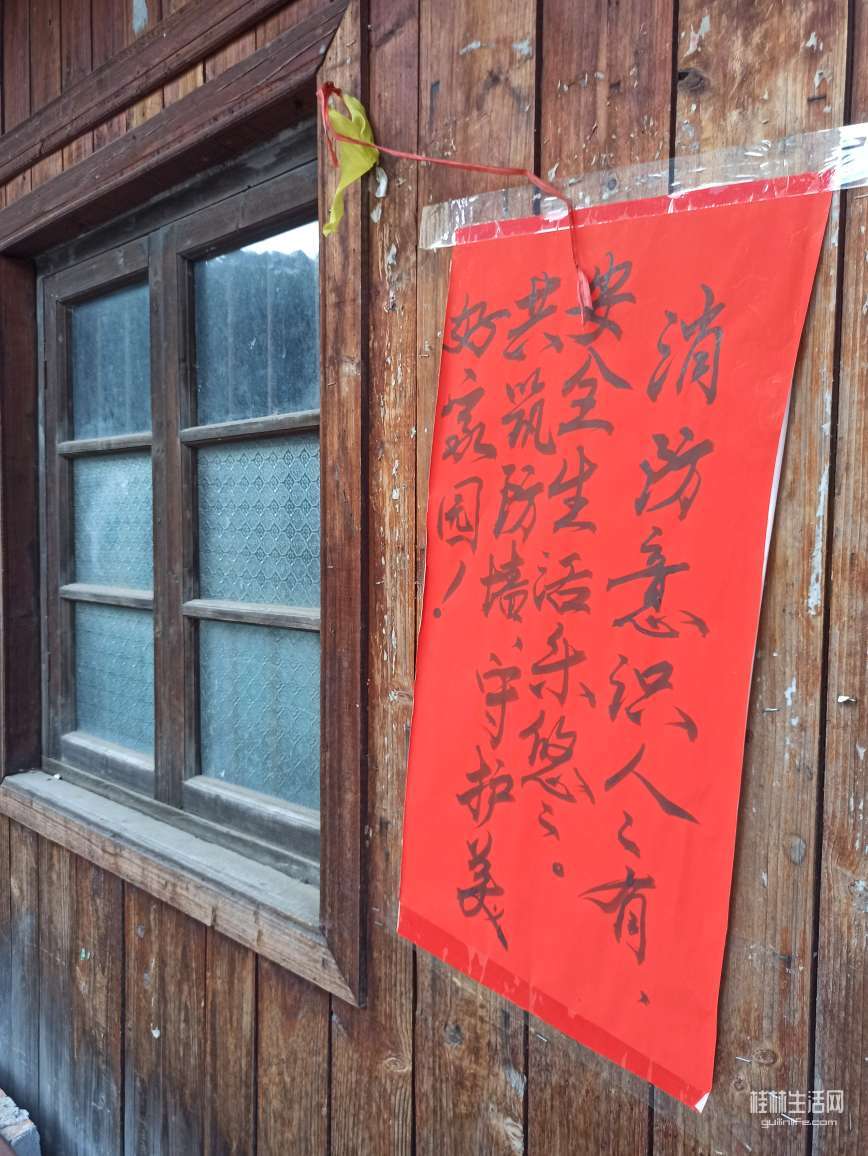 消防意识人々有、
安全生活乐悠々。
共筑防墙、守护美
好家园！
桂林生活网
guilinlife.com